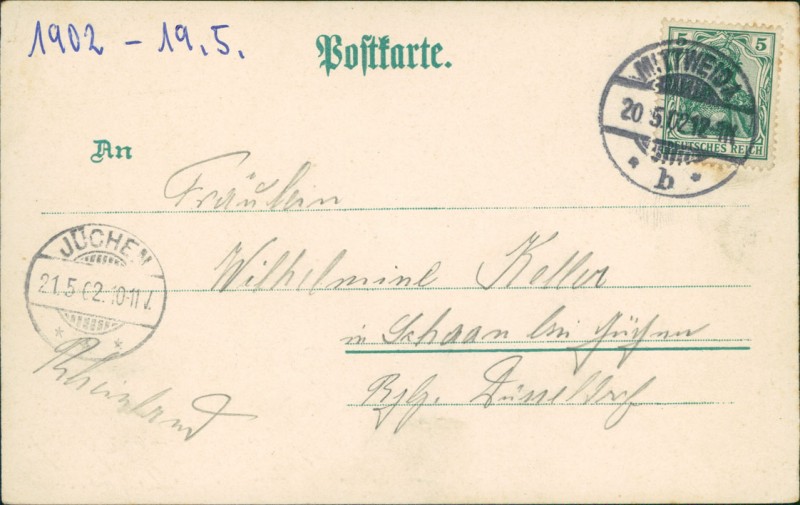 1902 - 19.5.
Postkarte.
5 5
DEUTSCHES REICH
MITTWEIDA
20.5.02.12-1N.
* b *
An
Fräulein
Wilhelmine Keller
in Schaan bei Jüchen
Bzg. Düsseldorf
Rheinland
JÜCHEN
21.5.02.10-11V.
* *